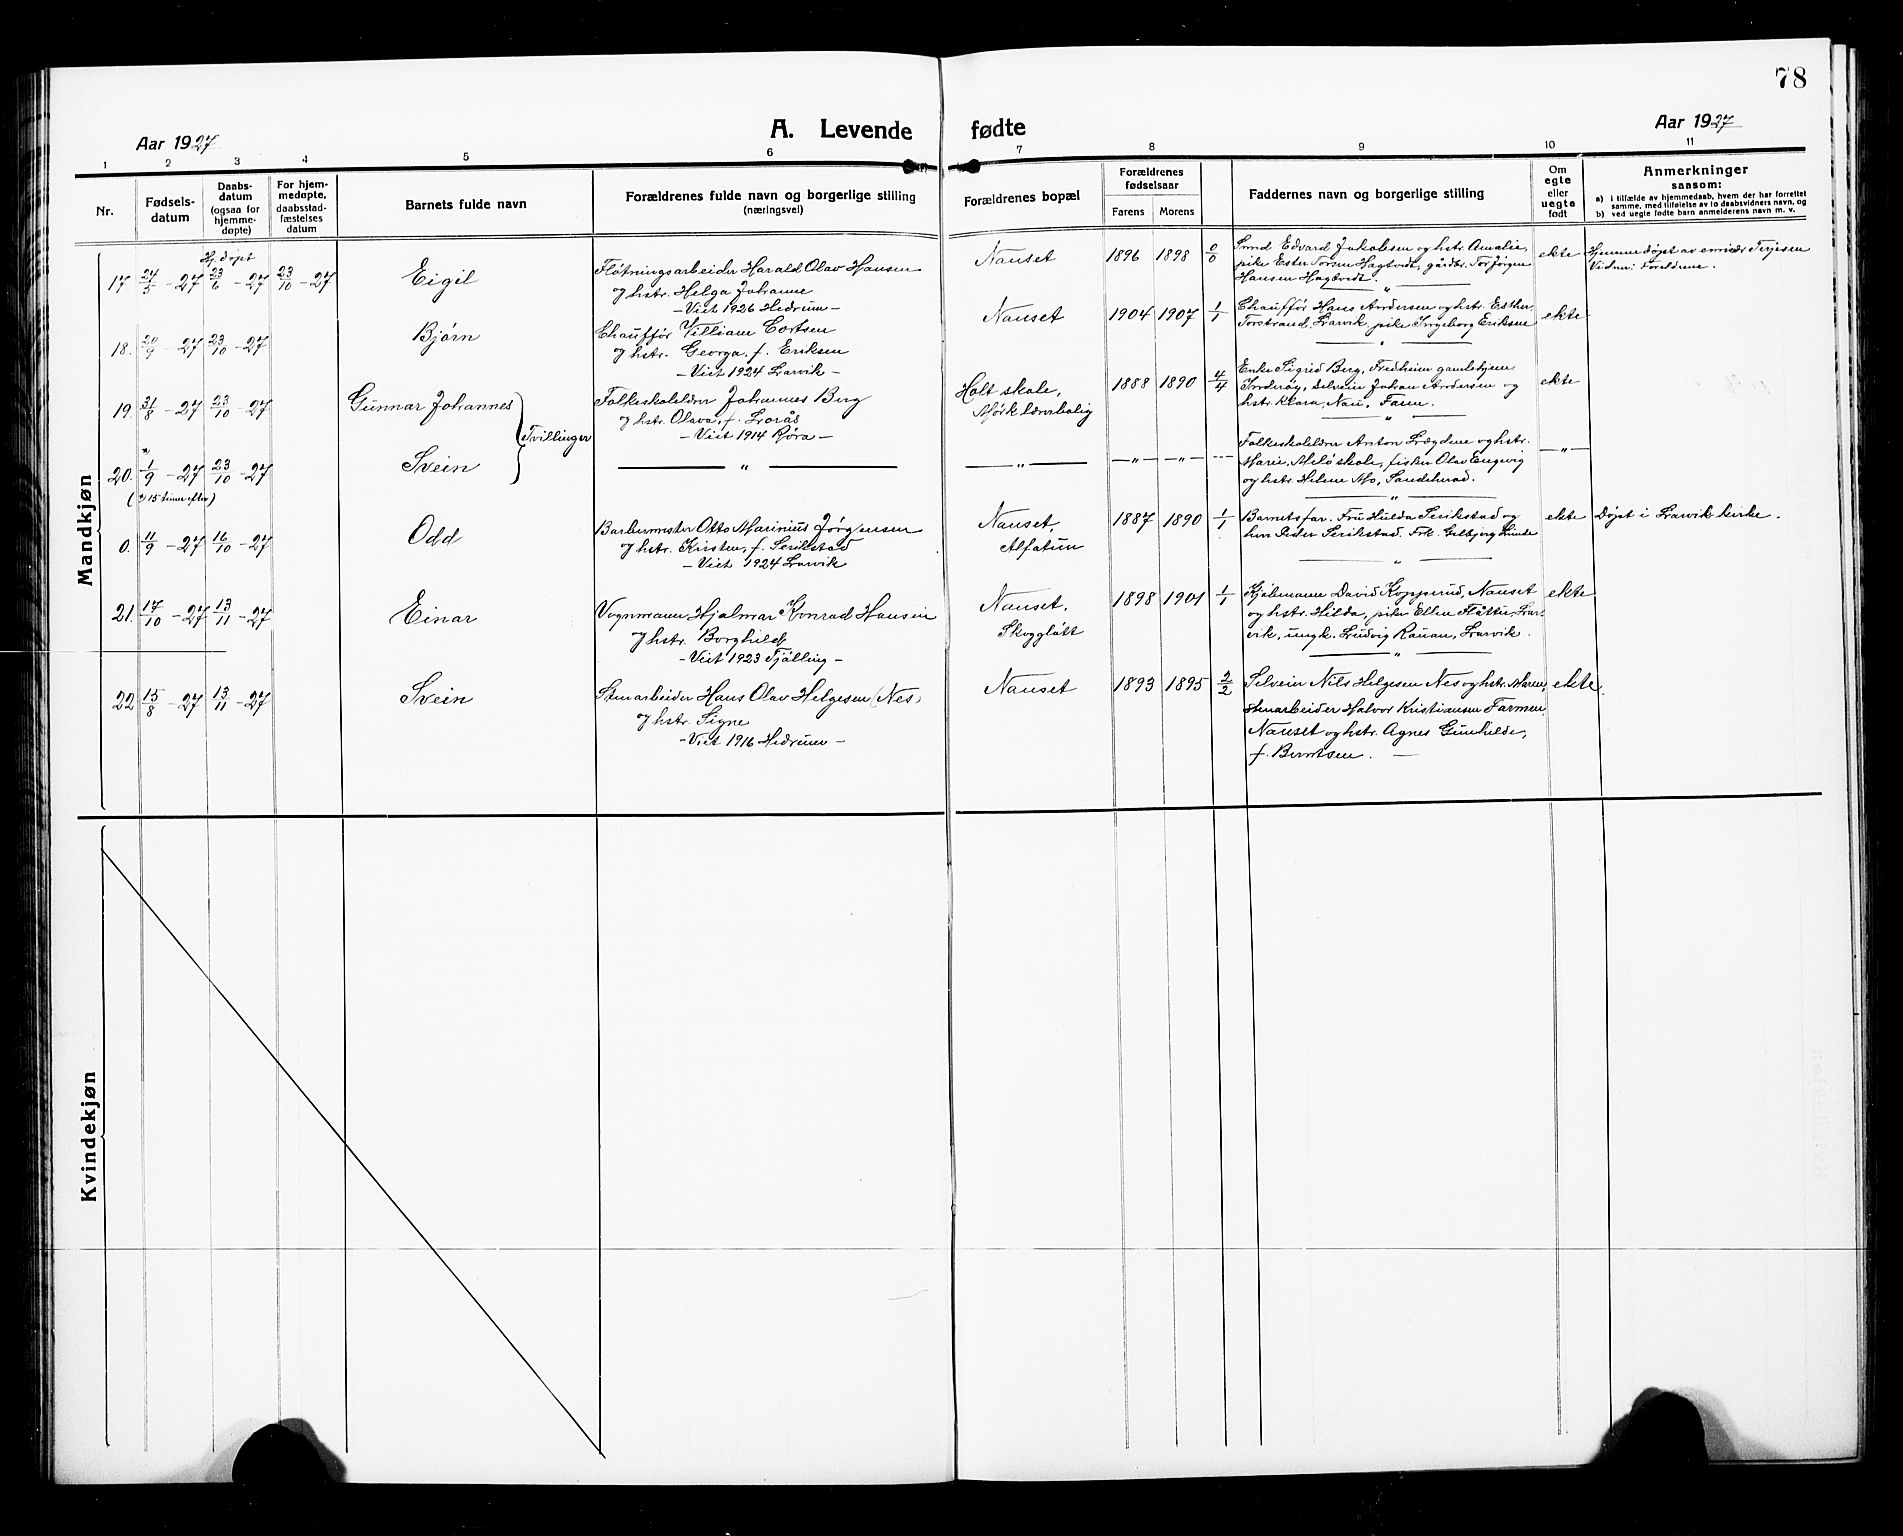 78
Aar 1927
A. Levende fødte
Aar 1927
1 2 3 4 5 6 7 8 9 10 11
Nr.
Fødsels-
datum
Daabs-
datum
(ogsaa for
hjemme-
døpte)
For hjem-
medøpte,
daabsstad-
fæstelses
datum
Barnets fulde navn
Forældrenes fulde navn og borgerlige stilling
(næringsvei)
Forældrenes bopæl
Forældrenes
fødselsaar
Farens Morens
Faddernes navn og borgerlige stilling
Om
egte
eller
uegte
født
Anmerkninger
saasom:
a) i tilfælde av hjemmedaab, hvem der har forrettet
samme, med tilføielse av to daabsvidners navn, og
b) ved uegte fødte barn anmelderens navn m. v.
Mandkjøn
Hj.døpt
17 24/5 - 27 23/6 - 27 23/10 - 27
Eigil
Fløtningsarbeider Harald Olav Hansen
og hstr. Helga Johanne
- Viet 1926 Hedrum -
Nauset
1896 1898 0/0
Smed Edvard Jakobsen og hstr. Amalie,
pike Ester Torsen Hagtvedt, gårdbr. Tor Jørgen
Hansen Hagtvedt.
ekte
Hjemmedøpt av Terjesen
Vidner: Foreldrene.
18. 20/9 - 27 23/10 - 27
Bjørn
Chauffør Villiam Cortsen
og hstr. Georga, f. Eriksen
- Viet 1924 Larvik -
Nauset
1904 1907 1/1
Chauffør Hans Andersen og hstr. Esther
Torstrand, Larvik, pike Ingeborg Eriksen
ekte
19. 31/8 - 27 23/10 - 27
Gunnar Johannes
Tvillinger
Folkeskolelærer Johannes Berg
og hstr. Olava, f. Lorås
- Viet 1914 Røra -
Holt skole,
Mørk lærerbolig
1888 1890 4/4
Enke Sigrid Berg, Fredheim gamlehjem
Inderøy, selveier Johan Andersen og
hstr. Klara, Nau, Farm.
ekte
20. 1/9 - 27 23/10 - 27
(15 timer efter)
Svein
— „ —
— „ —
— „ — — „ — ---
Folkeskolelærer Anton Lægdene og hstr.
Marie, Melö skole, fisker Olav Engevig
og hstr. Helene Mo, Sandeherad.
— „ —
0. 11/9 - 27 16/10 - 27
Odd
Barbermester Otto Marinius Jörgensen
og hstr. Kirsten, f. Serikstad
- Viet 1924 Larvik
Nauset,
Alfatun
1887 1890 1/1
Barnets far. Fru Hulda Serikstad og
herr Peder Serikstad. Frk. Gelbjørg Lunde
ekte
Døpt i Larvik kirke.
21. 17/10 - 27 13/11 - 27
Einar
Vognmann Hjalmar Konrad Hansen
og hstr. Borghild
- Viet 1923 Tjølling -
Nauset,
Skogglött
1898 1901 1/1
Kjøbmann David Kopperud, Nauset
og hstr. Hilda, pike Ellen Flåtten, Lar-
vik, ungk. Ludvig Rauan, Larvik.
ekte
22 15/8 - 27 13/11 - 27
Svein
Stenarbeider Hans Olav Helgesen (Nes)
og hstr. Signe
- Viet 1916 Hedrum -
Nauset
1893 1895 2/2
Selveier Nils Helgesen Nes og hstr. Maren,
stenarbeider Halvor Kristiansen Farmen,
Nauset og hstr. Agnes Gunhilde,
f. Berntsen. —
ekte.
Kvindekjøn